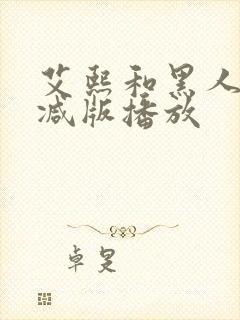 艾熙和黑人
减版播放
卓旻